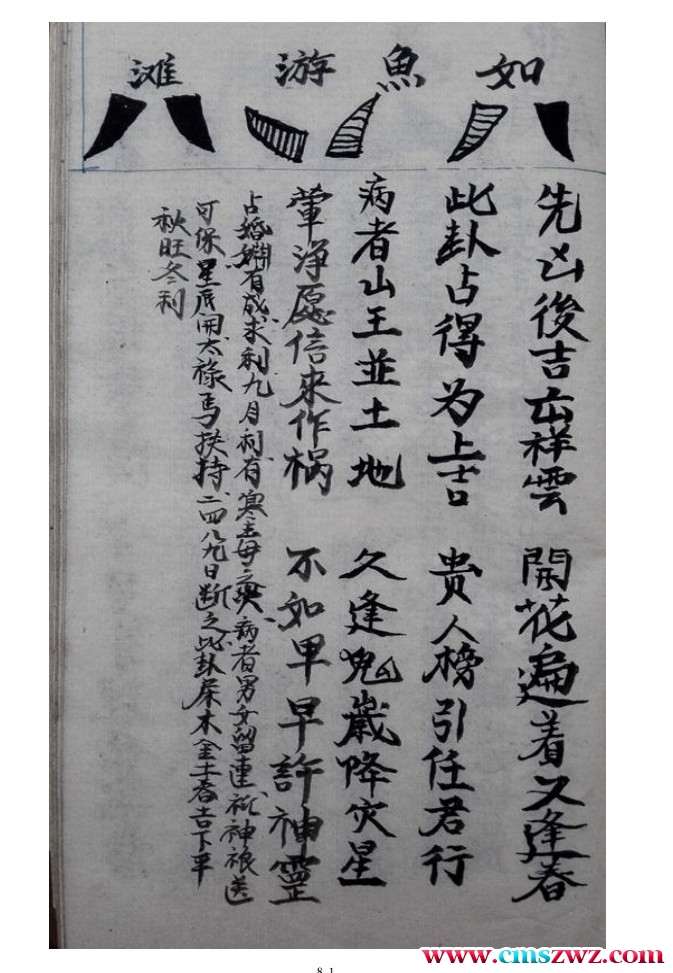 如魚游滩
先凶後吉 祥雲 開花遍着又逢春
此卦占得为上吉 贵人榜引任君行
病者山王並土地 久逢鬼歲降灾星
葷浄愿信來作祸 不如早早許神靈
占婚姻有成求利九月利有 病者男女留連 神 送
可保星辰 禄马扶持二四八九日断之此卦 木金土春吉下平
秋旺冬利
8 1
www.cmszwz.com